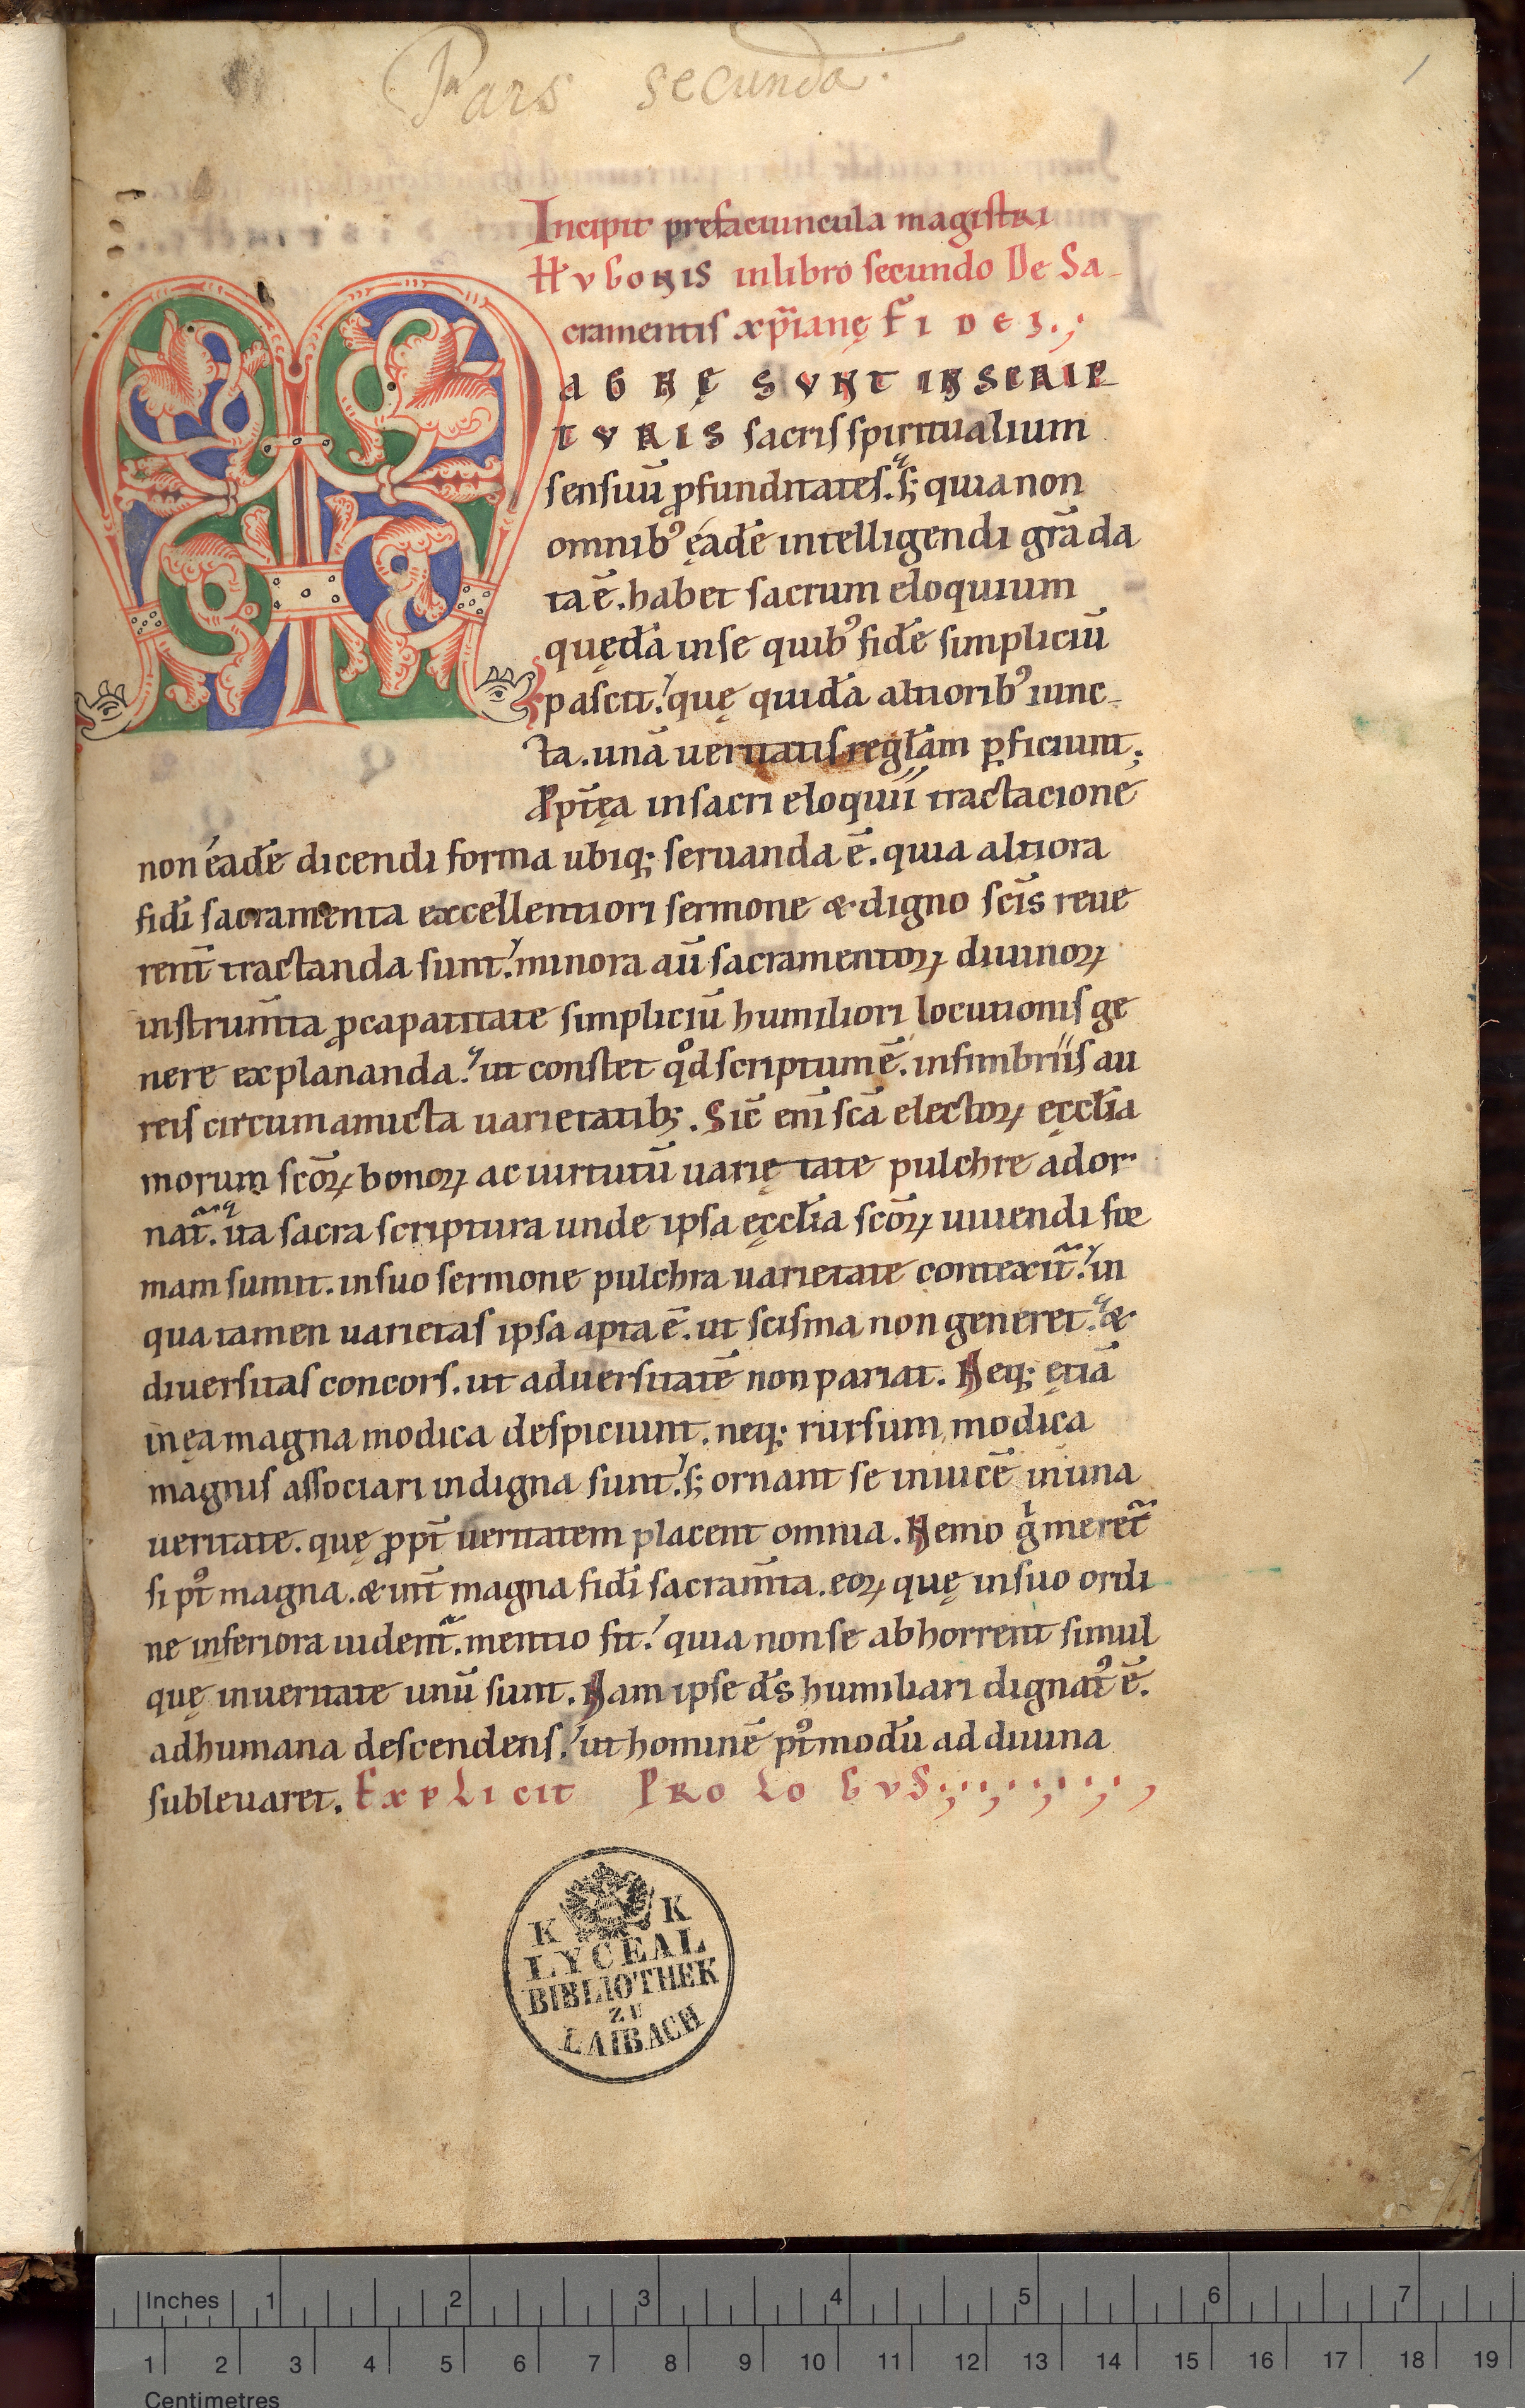 Pars secunda.
1
Incipit prefaciuncula magistri
Hugonis in libro secundo De Sa-
cramentis xp̄ianę Fidei.;
MAGNĘ SVNT IN SCRIP
TVRIS sacris spiritualium
sensuū ꝓfunditates. s; quia non
omnibꝰ ęadē intelligendi grā da
ta ē. habet sacrum eloquium
quędā in se quibꝰ fidē simpliciū
pascit. quę quidā altioribꝰ iunc-
ta. unā ueritatis reglām ꝑficiunt;
Ppt̄ęa in sacri eloquii tractacione
non eadē dicendi forma ubiq; seruanda ē. quia altiora
fidi̅ sacramenta excellentiori sermone & digno sc̄is reue
rent̄ tractanda sunt. minora aū sacramentoꝝ diuinoꝝ
instrum̄ta ꝓ capatitate simpliciū humiliori locutionis ge
nere explananda. ut constet qͦd scriptum ē. in fimbriis au
reis circumamicta uarietatib;. Sic̄ eni̅ sc̄a electoꝝ ęccl̄ia
morum sc̄oꝝ bonoꝝ ac uirtutū uarię tate pulchre ador
nat̄. ita sacra scriptura unde ipsa ęccl̄ia sc̄oꝝ uiuendi for
mam sumit. in suo sermone pulchra uarietate contexit̄. in
qua tamen uarietas ipsa apta ē. ut scisma non generet. &
diuersitas concors. ut aduersitatē non pariat. Neq; ętiā
in ęa magna modica despiciunt. neq; rursum modica
magnis associari indigna sunt. s; ornant se inuicē in una
ueritate. quę ꝓpt̄ ueritatem placent omnia. Nemo gͥ meret̄
si pꝰt magna. & int̄ magna fidi̅ sacram̄ta. eoꝝ quę in suo ordi
ne inferiora uident̄. mentio fit. quia non se abhorrent simul
quę in ueritate unū sunt. Nam ipse d̄s humiliari dignatꝰ ē.
ad humana descendens. ut hominē pꝰt modū ad diuina
subleuaret. Explicit Prologus;
K K
LYCEAL
BIBLIOTHEK
ZU
LAIBACH
Inches 1 2 3 4 5 6 7
1 2 3 4 5 6 7 8 9 10 11 12 13 14 15 16 17 18 19
Centimetres